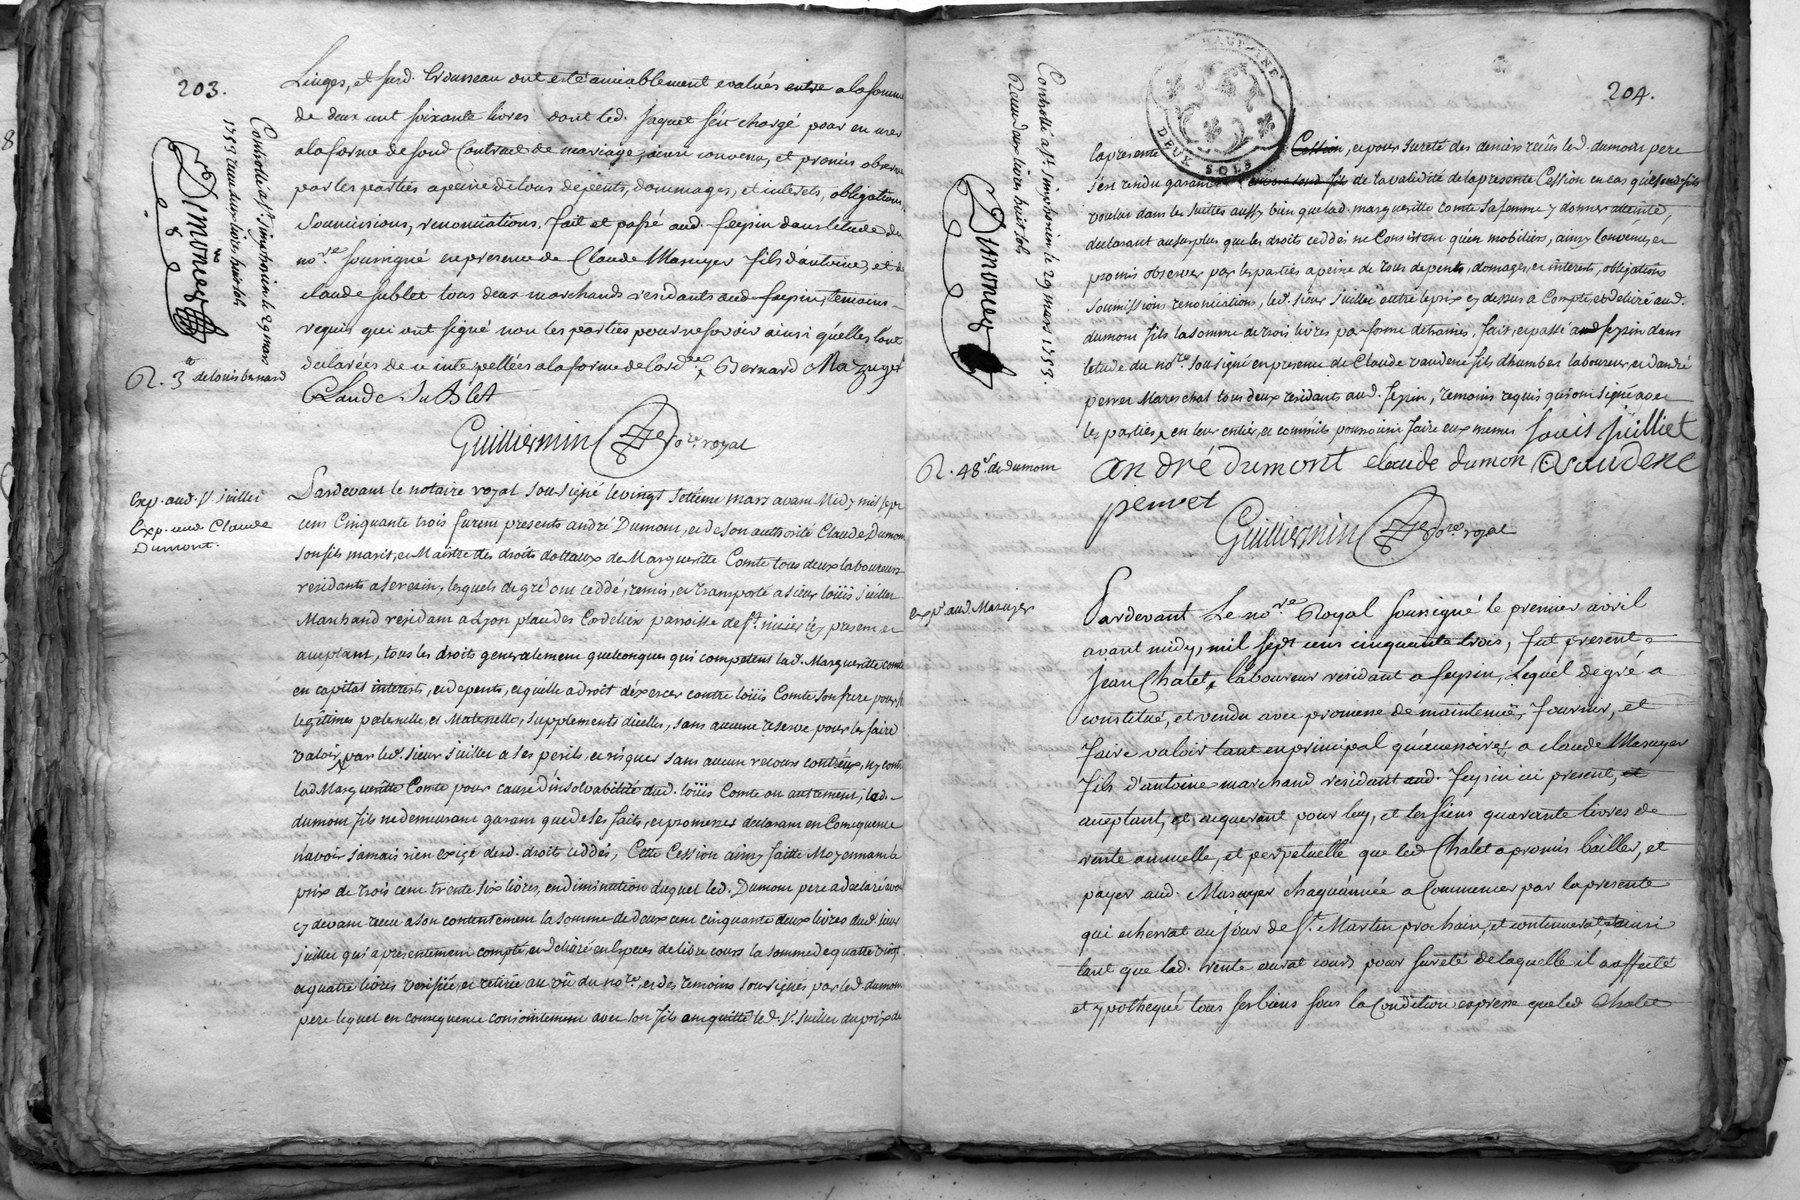 203.
Linges, et susd. trousseau ont esté amiablement evalués entre a la somme
de deux cent soixante livres dont led. Jaquet s'est chargé pour en user
a la forme de sond Contract de mariage, ainsi convenu, et promis observer
par les parties a peine de tous depents, dommages, et interets, obligations
Soumissions, renonciations. fait et passé aud. feypin dans letude du
no.re soussigné en presence de Claude Mazuyer fils d'antoine, et de
claude sublet tous deux marchands residants aud. feypin, temoins
requis qui ont signé non les parties pour ne sçavoir ainsi qu'elles l'ont
declarées de ce interpellées a la forme de l'ord.ce Bernard Mazuyer
CLaude SuBlet
Guilliermin no.re royal
Controllé a S.t simphorien le 29 mars
1753 reçu deux livres huit sols
Dimonier
R. 3 de louis bernard
Exp. aud. S.r juillet
Exp. aud Claude
Dumont.
Pardevant le notaire royal soussigné le vingt septième mars avant Midy mil sept
cent Cinquante trois furent presents andré Dumont, et de son authorité Claude Dumont
son fils maris, et Maistre des droits dottaux de Margueritte Comte tous deux laboureurs
residants a Serezin, lesquels de gré ont ceddé, remis, et transporté a sieur loüis juillet
Marchand residant a Lyon place des Cordeliers parroisse de S.t nisier icy present et
aceptant, tous les droits generalement quelconques qui competent lad. Margueritte comte
en capital interests, et depents, et quelle a droit d'éxercer contre loüis Comte son frere pour
legitimes paternelle, et Maternelle, supplements d'icelles, sans aucune reserve pour les faire
valoir par led. sieur juillet a ses perils, et risques sans aucun recours contr'eux, ny contre
lad Margueritte Comte pour cause d'insolvabilité dud. loüis Comte ou autrement, led.
dumont fils ne demeurant garant que de ses faits, et promesses declarant en Consequence
n'avoir jamais rien exigé desd. droits ceddés, Cette Cession ainsy faitte Moyennant le
prix de trois cent trente six livres, en diminution duquel led. Dumont pere a declaré avoir
cy devant receu a son contentement la somme de deux cent cinquante deux livres dud. sieur
juillet qui a presentement compté, et delivré en Especes de libre cours la somme de quatre vingt
quatre livres verifiée, et retirée au vû du no.re, et des temoins soussignés par led. dumont
pere lequel en consequence conjointement avec son fils en quitte led. S.r juillet du prix de
204.
HAUT-INE
DEUX SOLS
la presente Cession, et pour sureté des deniers reçûs led. dumont pere
s'est rendu garant de la validité de la presente Cession en cas que sond fils
voulut dans les suittes aussy bien que lad. margueritte comte sa femme y donner atteinte,
declarant au surplus que les droits ceddés ne Consistent qu'en mobiliers, ainsy Convenu, et
promis observer par les parties a peine de tous depents, domages, et interests, obligations
soumissions renonciations, led. sieur juillet outre le prix cy dessus a Compté, et delivré aud.
dumont fils la somme de trois livres par forme d'etraines, fait, et passé aud feypin dans
letude du no.re soussigné en presence de Claude vaudene fils d'humbert laboureur, et d'andré
perret Mareschal tous deux residants aud. feypin, temoins requis qui ont signé avec
les parties, louis juilliet
andré dumont claude dumon C vaudene
perret
Guilliermin no.re royal
Controllé a S.t simphorien le 29 mars 1753.
Reçu deux livres huit sols
Dimonier
R. 48 de dumont
exp.é aud. Mazuyer
Pardevant Le no.re Royal soussigné le premier avril
avant midy, mil sept cens cinquante trois, fut present
Jean Chalet, laboureur residant a feypin, Lequel de gré a
constitué, et vendu avec promesse de maintenir, fournir, et
faire valoir tant en principal qu'accessoires, a claude Mazuyer
fils d'antoine marchand residant aud. feypin ici present, et
aceptant, et acquerant pour luy, et les siens quarante livres de
rente annuelle, et perpetuelle que led Chalet a promis bailler, et
payer aud. Mazuyer chaqu'année a Commencer par la presente
qui echerrat au jour de S.t Martin prochain, et continuerat ainsi
tant que lad. rente aurat cours pour sureté de laquelle il a affecté
et ypothequé tous ses biens sous la Condition expresse que led Chalet